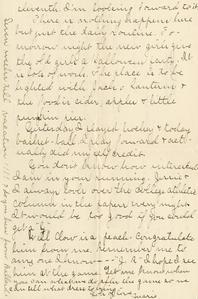 eleventh. I'm looking forward to it.
There is nothing happens here
but just the daily routine. To-
morrow night the new girls give
the old girls a Halloween party. It
is lots of work. The place is to be
lighted with Jack o' Lanterns &
the food is cider, apples & little
pumpkin pies.
Yesterday I played hockey & today
basket-ball. I play forward &
actually did my self credit.
You don't know how interested
I am in your running.
& I always look over the college athletics
column in the papers every night.
It would be too good if you could
get a "
Will Clow is a peach. Congratulate
him from me. Remember me to
any one I know — J. R. I hope to see
him at the game. Let me know when
you can
can tell what dress to bring.
Lots of love
Marie